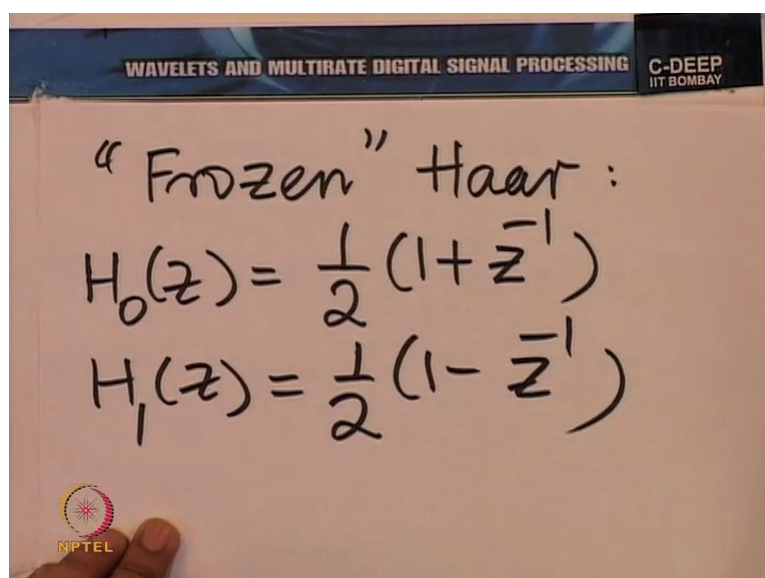 WAVELETS AND MULTIRATE DIGITAL SIGNAL PROCESSING
C-DEEP
IIT BOMBAY
"Frozen" Haar:
H₀(z) = 1/2 (1 + z⁻¹)
H₁(z) = 1/2 (1 - z⁻¹)
NPTEL